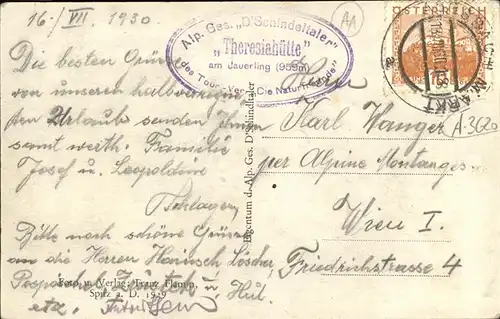 16/VII. 1930
Die besten Grüsse
von unserem halbverregne-
ten Urlaub senden Ihnen
samt werth. Familie
Josef u. Leopoldine
Schlager
Bitte noch schöne Grüsse
an die Herren Heinrich Löscher,
Pospischil, u.
etz.
Foto u. Verlag: Franz
Spitz a. D. 1929
Alp. Ges. „D'Schindeltaler"
„Theresiahütte"
am Jauerling (959m)
des Tour.-Ver. „Die Naturfreunde"
Eigentum d. Alp. Ges. D'Schindeltaler
AA
ÖSTERREICH
MARKT
A-3620
Herrn
Karl Wanger
per Alpine Montanges.
Wien I.
Friedrichstrasse 4